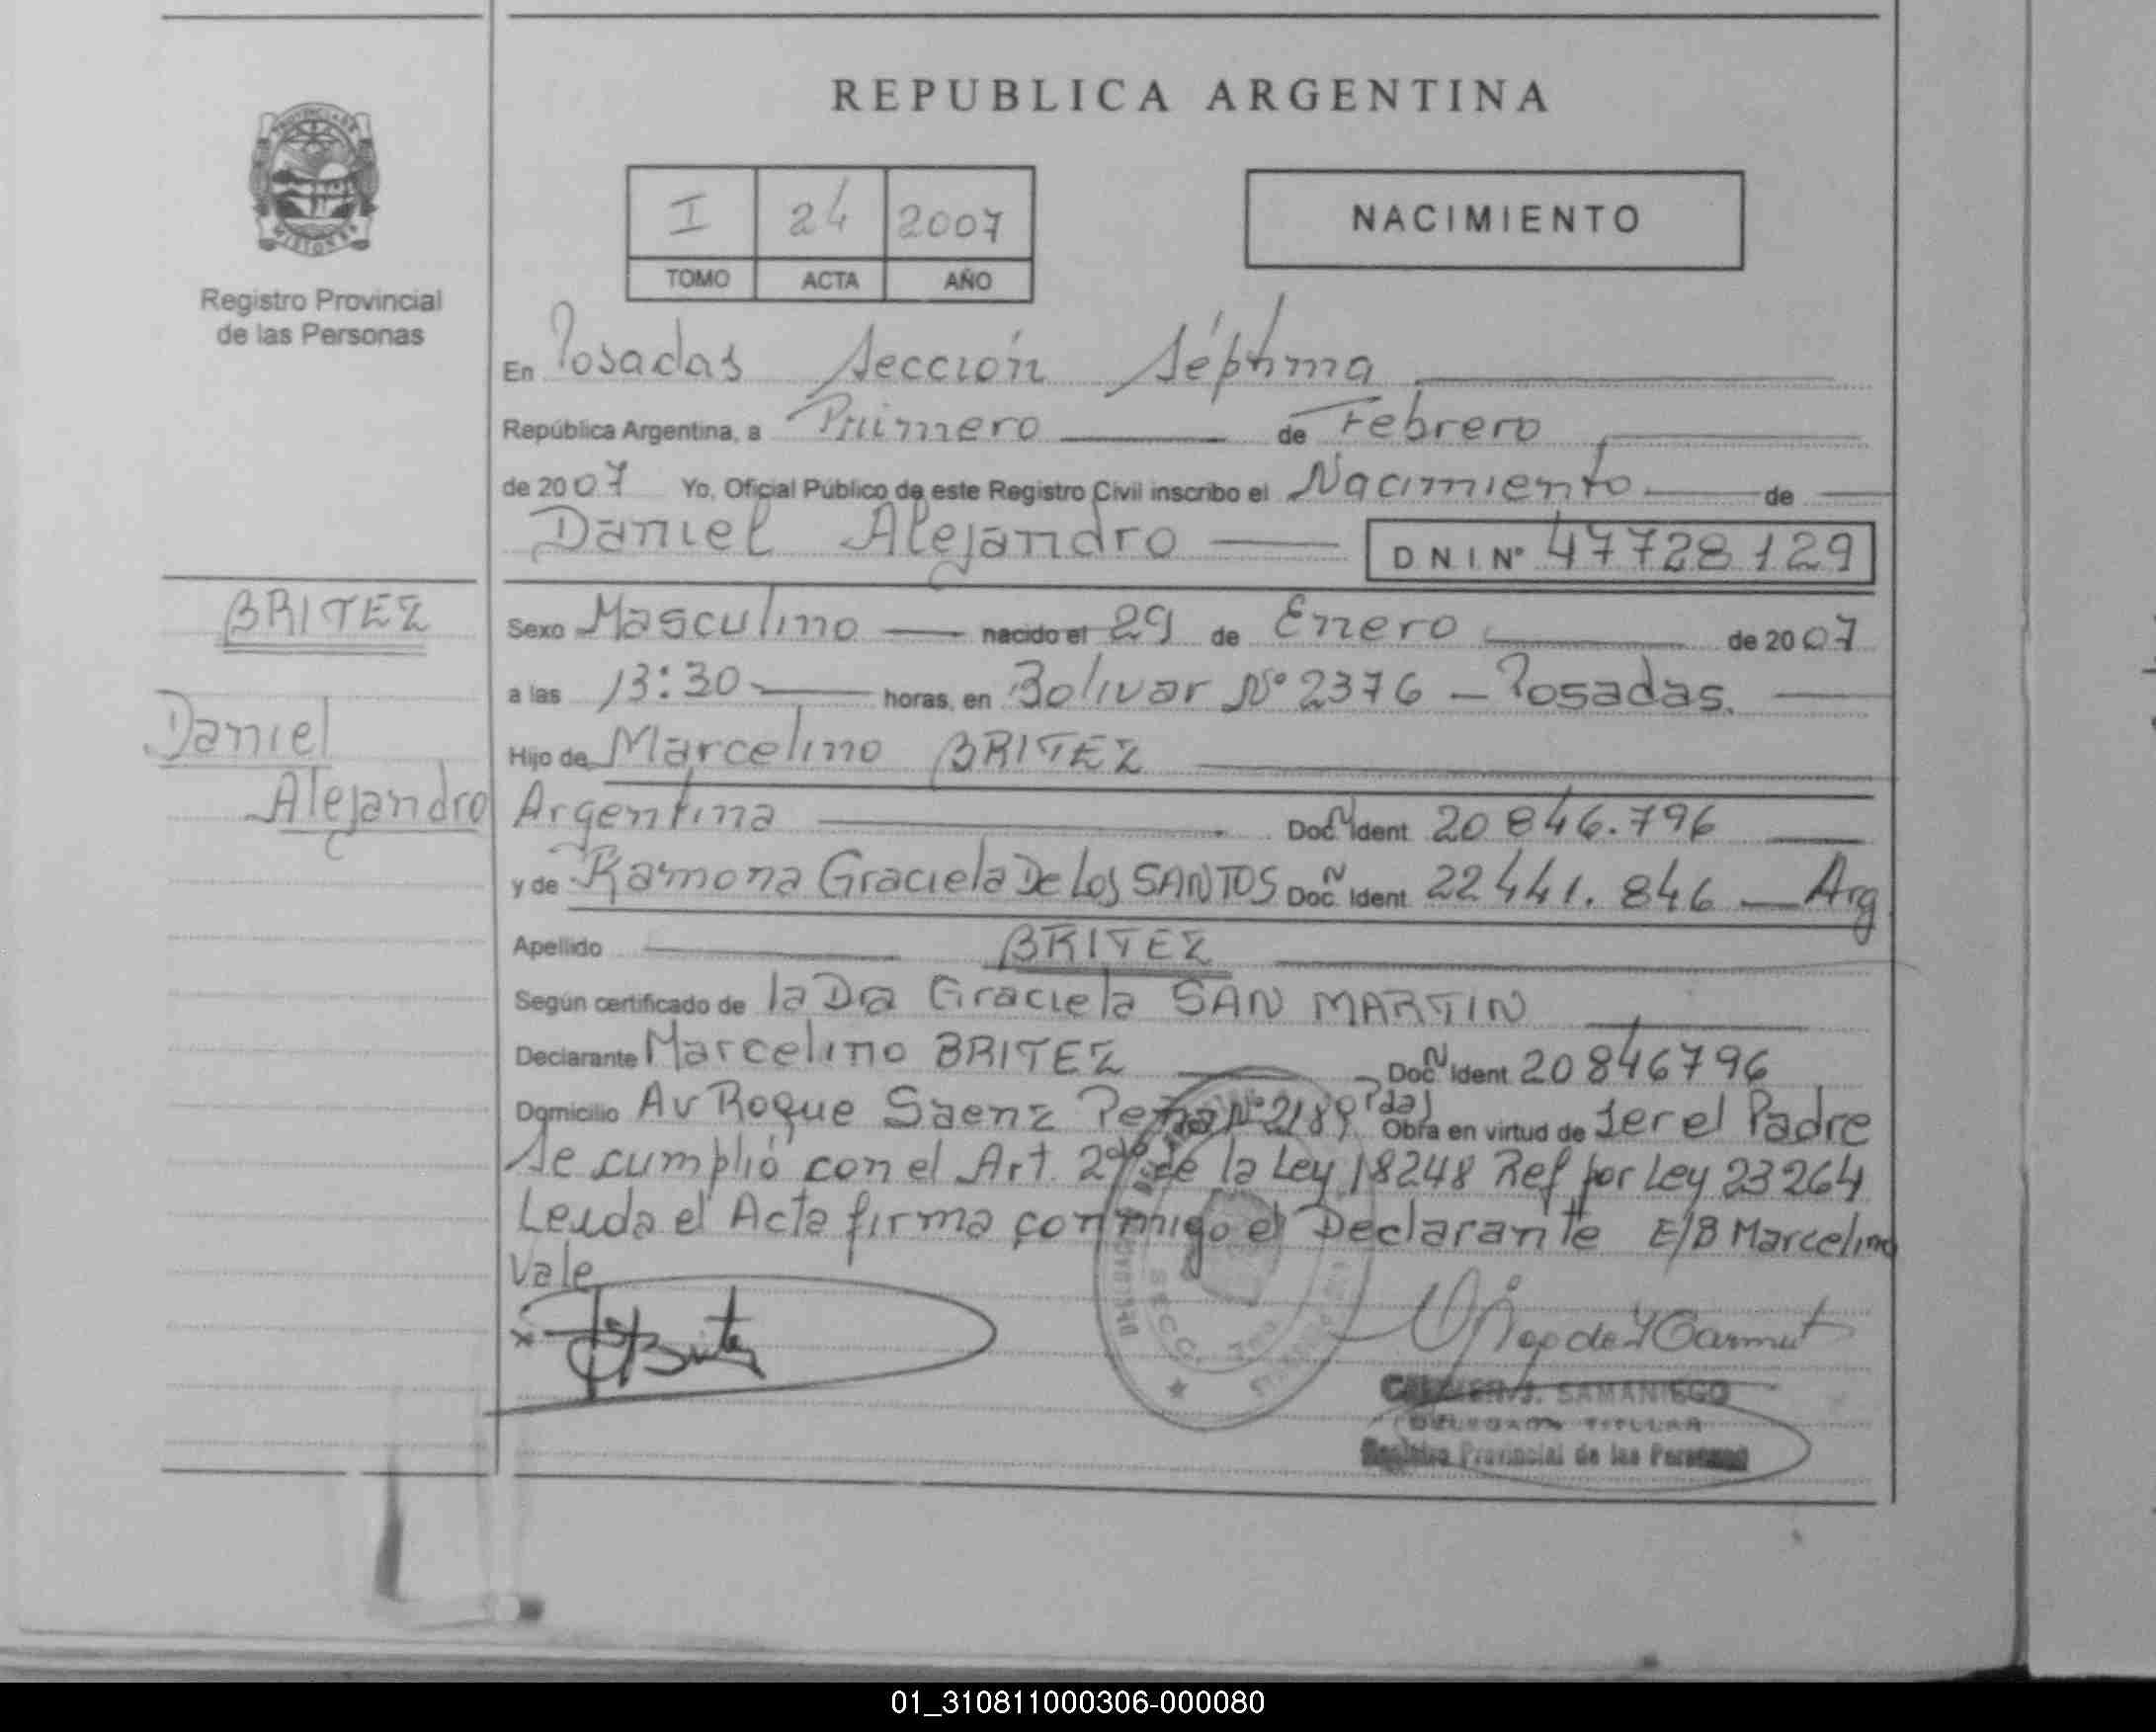 REPUBLICA ARGENTINA
PROVINCIA DE
MISIONES
Registro Provincial
de las Personas
I 24 2007
TOMO ACTA AÑO
NACIMIENTO
En Posadas Sección Séptima
República Argentina, a Primero de Febrero
de 2007 Yo, Oficial Público de este Registro Civil inscribo el Nacimiento de
Daniel Alejandro D N I Nº 47728129
BRITEZ
Daniel
Alejandro
Sexo Masculino nacido el 29 de Enero de 2007
a las 13:30 horas, en Bolivar Nº 2376 - Posadas.
Hijo de Marcelino BRITEZ
Argentina Doc. Ident. 20.846.796
y de Ramona Graciela De Los SANTOS Doc. Ident. 22441.846 - Arg
Apellido BRITEZ
Según certificado de la Dra Graciela SAN MARTIN
Declarante Marcelino BRITEZ Doc. Ident. 20846796
Domicilio Av Roque Saenz Peña Nº 2189 Pdas Obra en virtud de ser el Padre
Se cumplió con el Art. 2º de la Ley 18248 Ref por Ley 23264
Leida el Acta firma conmigo el Declarante E/B Marcelino
Vale
SAMANIEGO
TITULAR
Registro Provincial de las Personas
01_310811000306-000080